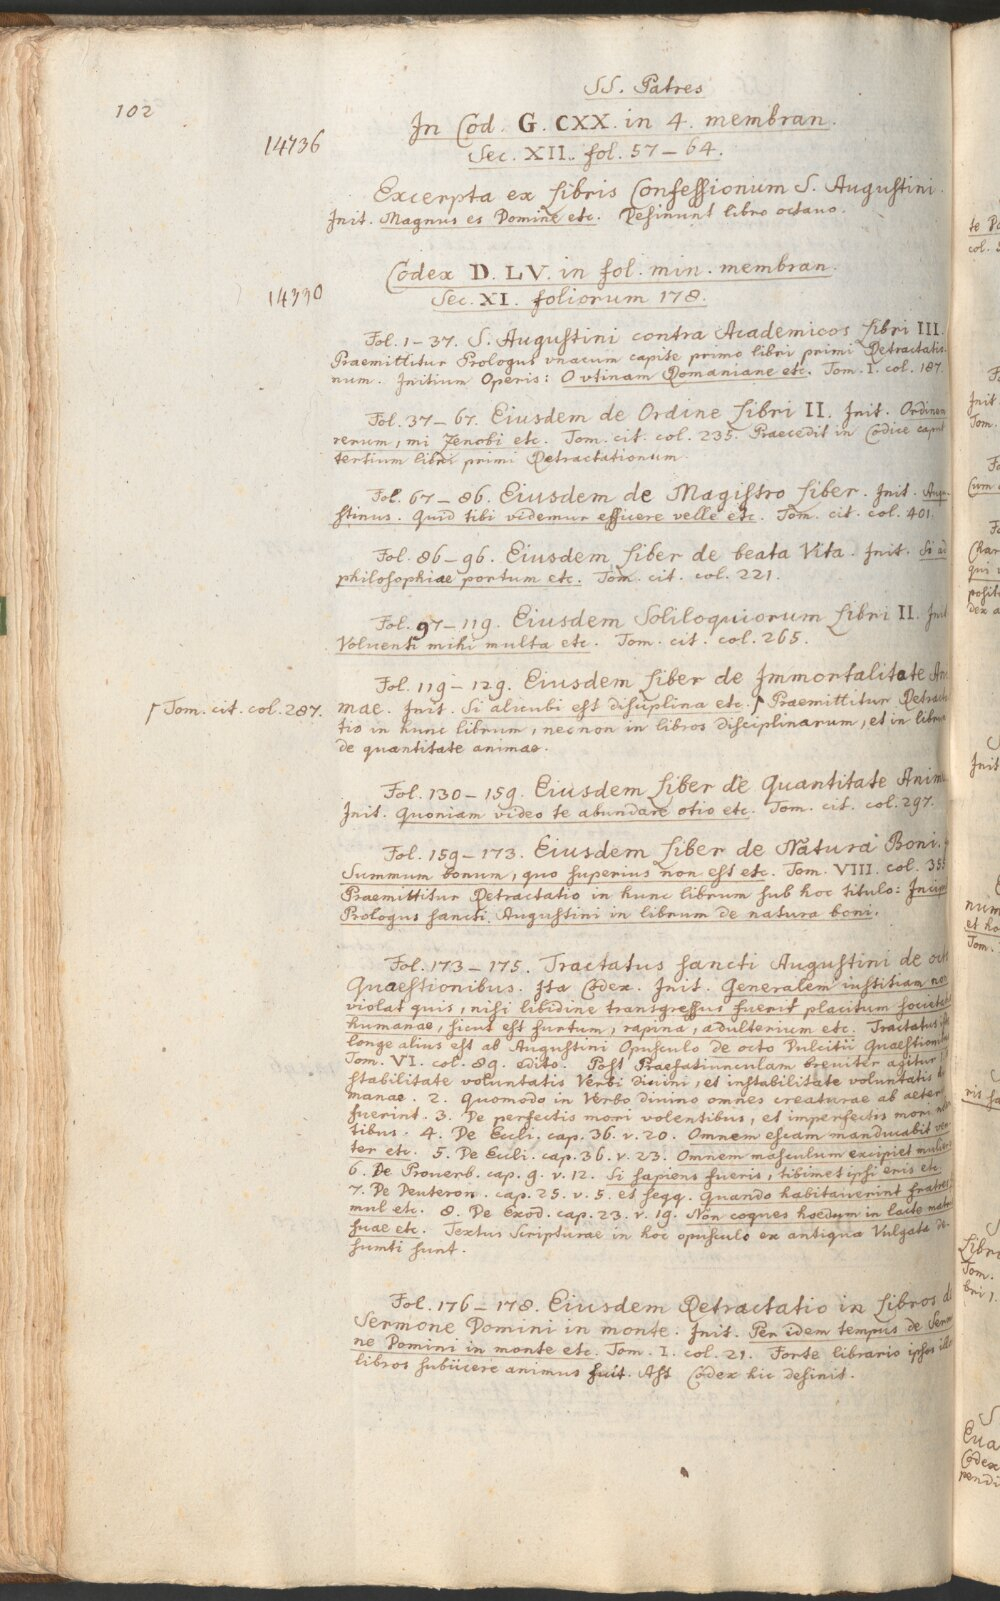 102
SS. Patres
In Cod. G. CXX. in 4. membran.
14736
Sec. XII. fol. 57–64.
Excerpta ex Libris Confessionum S. Augustini.
Init. Magnus es Domine etc. Desinunt libro octavo.
Codex D. LV. in fol. min. membran.
14330
Sec. XI. foliorum 178.
Fol. 1–37. S. Augustini contra Academicos Libri III.
Praemittitur Prologus vnacum capite primo libri primi Retractatio-
num. Initium Operis: O vtinam Romaniane etc. Tom. I. col. 187.
Fol. 37–67. Eiusdem de Ordine Libri II. Init. Ordinem
rerum, mi Zenobi etc. Tom. cit. col. 235. Praecedit in Codice caput
tertium libri primi Retractationum.
Fol. 67–86. Eiusdem de Magistro Liber. Init. Augu-
stinus. Quid tibi videmur efficere velle etc. Tom. cit. col. 401.
Fol. 86–96. Eiusdem Liber de beata Vita. Init. Si ad
philosophiae portum etc. Tom. cit. col. 221.
Fol. 97–119. Eiusdem Soliloquiorum Libri II. Init
Voluenti mihi multa etc. Tom. cit. col. 265.
Fol. 119–129. Eiusdem Liber de Immortalitate Ani
mae. Init. Si alicubi est disciplina etc. ⌈ Praemittitur Retracta
⌈ Tom. cit. col. 287.
tio in hunc librum, necnon in libros disciplinarum, et in librum
de quantitate animae.
Fol. 130–159. Eiusdem Liber de Quantitate Anim
Init. Quoniam video te abundare otio etc. Tom. cit. col. 297.
Fol. 159–173. Eiusdem Liber de Natura Boni.
Summum bonum, quo superius non est etc. Tom. VIII. col. 355
Praemittitur Retractatio in hunc librum sub hoc titulo: Incipit
Prologus sancti Augustini in librum de natura boni.
Fol. 173–175. Tractatus sancti Augustini de octo
Quaestionibus. Ita Codex. Init. Generalem iustitiam non
violat quis, nisi libidine transgressus fuerit placitum societatis
humanae, sicut est furtum, rapina, adulterium etc. Tractatus
longe alius est ab Augustini Opusculo de octo Dulcitii Quaestionibus
Tom. VI. col. 89. edito. Post Praefatiunculam breuiter agitur
stabilitate voluntatis Verbi Diuini, et instabilitate voluntatis
manae. 2. Quomodo in Verbo diuino omnes creaturae ab aeter
fuerint. 3. De perfectis mori volentibus, et imperfectis mori
tibus. 4. De Eccli. cap. 36. v. 20. Omnem escam manducabit ven
ter etc. 5. De Eccli. cap. 36. v. 23. Omnem masculum excipiet mulier
6. De Prouerb. cap. 9. v. 12. Si sapiens fueris, tibimetipsi eris etc.
7. De Deuteron. cap. 25. v. 5. et seqq. Quando habitauerint fratres
mul etc. 8. De Exod. cap. 23. v. 19. Non coques hoedum in lacte matris
suae etc. Textus Scripturae in hoc opusculo ex antiqua Vulgata de-
sumti sunt.
Fol. 176–178. Eiusdem Retractatio in Libros de
Sermone Domini in monte. Init. Per idem tempus de Sermo
ne Domini in monte etc. Tom. I. col. 21. Forte librario ipsos illo
libros subiicere animus fuit. Ast Codex hic desinit.